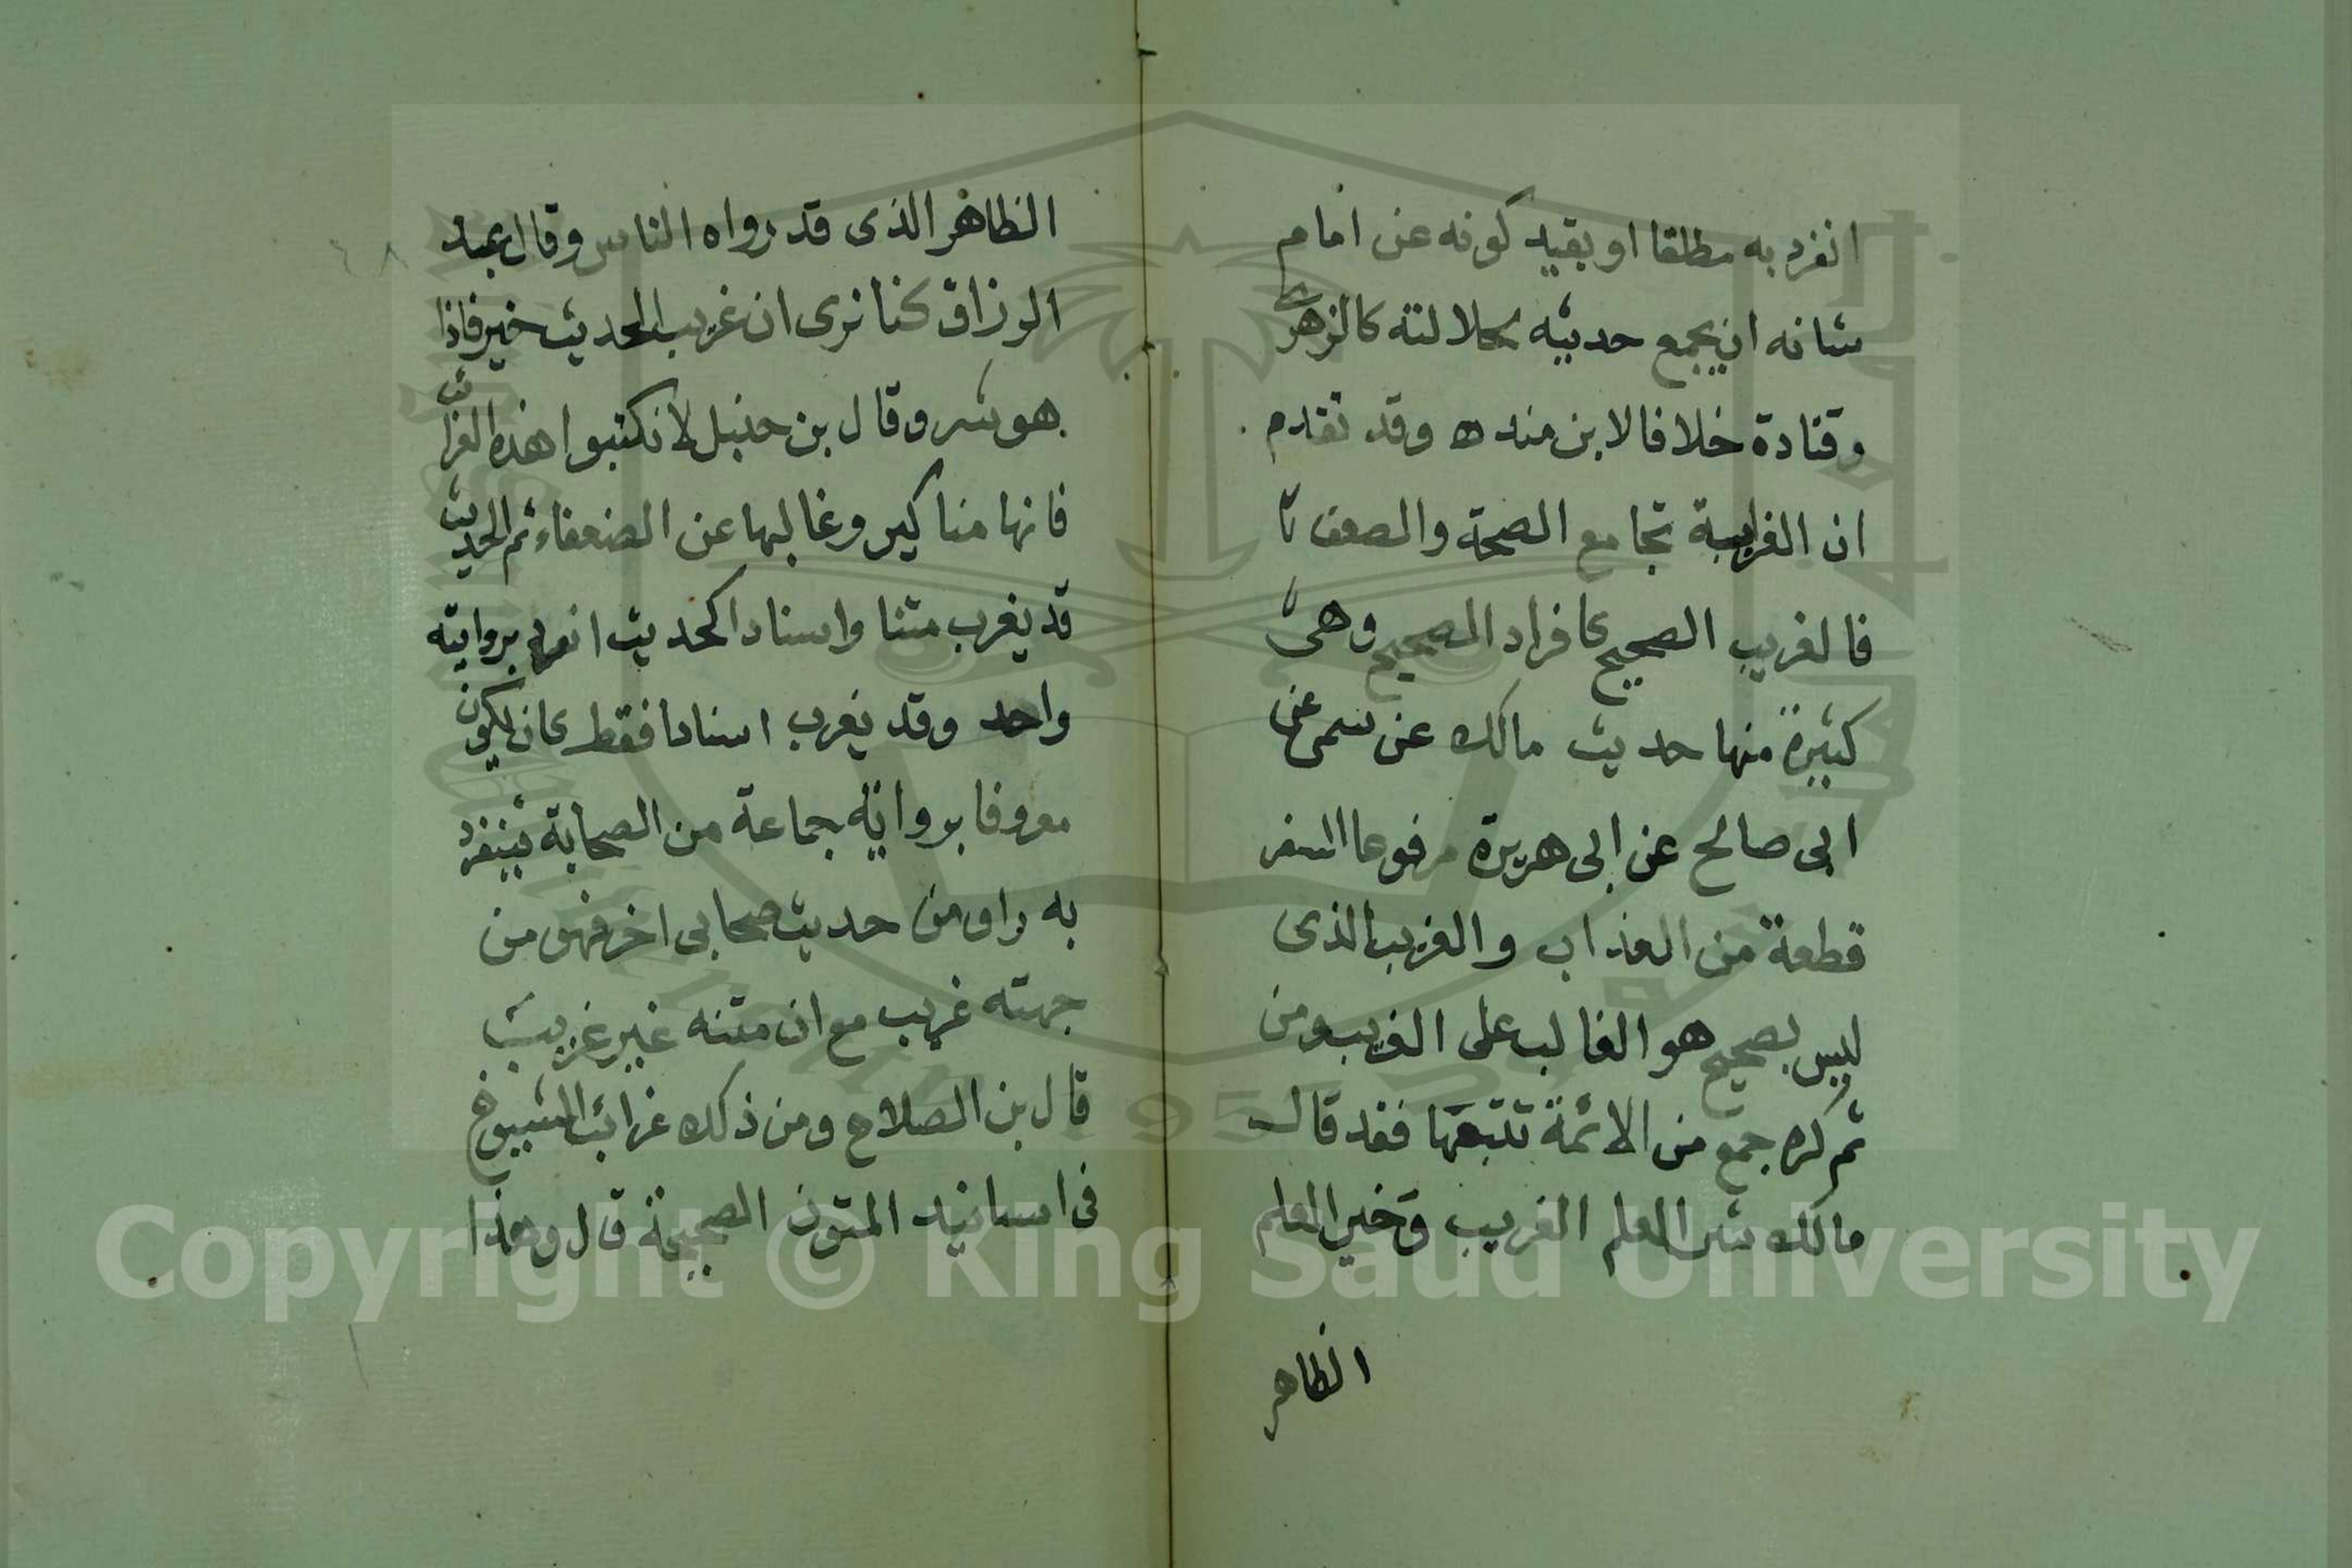 انفرد به مطلقا او بقيد كونه عن امام
شانه ان يجمع حديثه لجلالته كالزهرى
وقتادة خلافا لابن منده وقد تقدم
ان الغرابة تجامع الصحة والضعف
فالغريب الصحيح كافراد الصحيح وهى
كثيرة منها حديث مالك عن سمى عن
ابى صالح عن ابى هريرة مرفوعا السفر
قطعة من العذاب والغريب الذى
ليس بصحيح هو الغالب على الغريب ومن
ثم كره جمع من الائمة تتبعها فقد قال
مالك شر العلم الغريب وخير العلم
الظاهر
الظاهر الذى قد رواه الناس وقال عبد
الرزاق كنا نرى ان غريب الحديث خير فاذا
هو شر وقال بن حنبل لا تكتبوا هذه الغرائب
فانها مناكير وغالبها عن الضعفاء ثم الحديث
قد يغرب متنا واسنادا كحديث انفرد بروايته
واحد وقد يغرب اسنادا فقط كان يكون
معروفا برواية جماعة من الصحابة فينفرد
به راو من حديث صحابى اخر فهو من
جهته غريب مع ان متنه غير غريب
قال بن الصلاح ومن ذلك غرائب الشيوخ
فى اسانيد المتون الصحيحة قال وهذا
Copyright © King Saud University